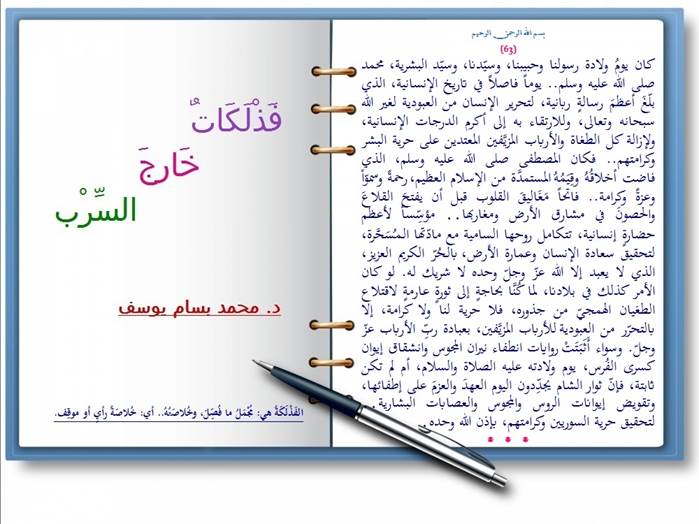 بسم الله الرحمن الرحيم
(63)
كان يومُ ولادة رسولنا وحبيبنا، وسيّدنا، وسيّد البشرية، محمد
صلى الله عليه وسلم.. يوماً فاصلاً في تاريخ الإنسانية، الذي
بلّغ أعظمَ رسالةٍ ربانية، لتحرير الإنسان من العبودية لغير الله
سبحانه وتعالى، وللارتقاء به إلى أكرم الدرجات الإنسانية،
ولإزالة كل الطغاة والأرباب المزيَّفين المعتدين على حرية البشر
وكرامتهم.. فكان المصطفى صلى الله عليه وسلم، الذي
فاضت أخلاقُهُ وقِيَمُهُ المستمدّة من الإسلام العظيم، رحمةً وسموّاً
وعزةً وكرامة.. فاتحاً مَغَاليقَ القلوب قبل أن يفتحَ القلاعَ
والحصونَ في مشارق الأرض ومغاربها.. مؤسِّساً لأعظم
حضارةٍ إنسانية، تتكامل روحها السامية مع مادّتها المُسَخَّرة،
لتحقيق سعادة الإنسان وعمارة الأرض، بالحُرّ الكريم العزيز،
الذي لا يعبد إلا الله عزّ وجلّ وحده لا شريك له. لو كان
الأمر كذلك في بلادنا، لما كُنَّا بحاجةٍ إلى ثورةٍ عارمةٍ لاقتلاع
الطغيان الهمجيّ من جذوره، فلا حرية لنا ولا كرامة، إلا
بالتحرّر من العبودية للأرباب المزيَّفين، بعبادة ربّ الأرباب عزّ
وجلّ. وسواء أَثَبَتَتْ روايات انطفاء نيران المجوس وانشقاق إيوان
كسرى الفُرس، يوم ولادته عليه الصلاة والسلام، أم لم تكن
ثابتة، فإنّ ثوار الشام يجدّدون اليوم العهدَ والعزمَ على إطفائها،
وتقويض إيوانات الروس والمجوس والعصابات البشارية.
لتحقيق حرية السوريين وكرامتهم، بإذن الله وحده.
فَذْلَكَاتٌ
خَارِجَ
السِّرْب
د. محمد بسام يوسف
الفَذْلَكَةُ هي: مُجْمَلُ ما فُصِّلَ، وخُلاصَتُهُ.. أي: خُلاصَةُ رأيٍ أو موقِف.